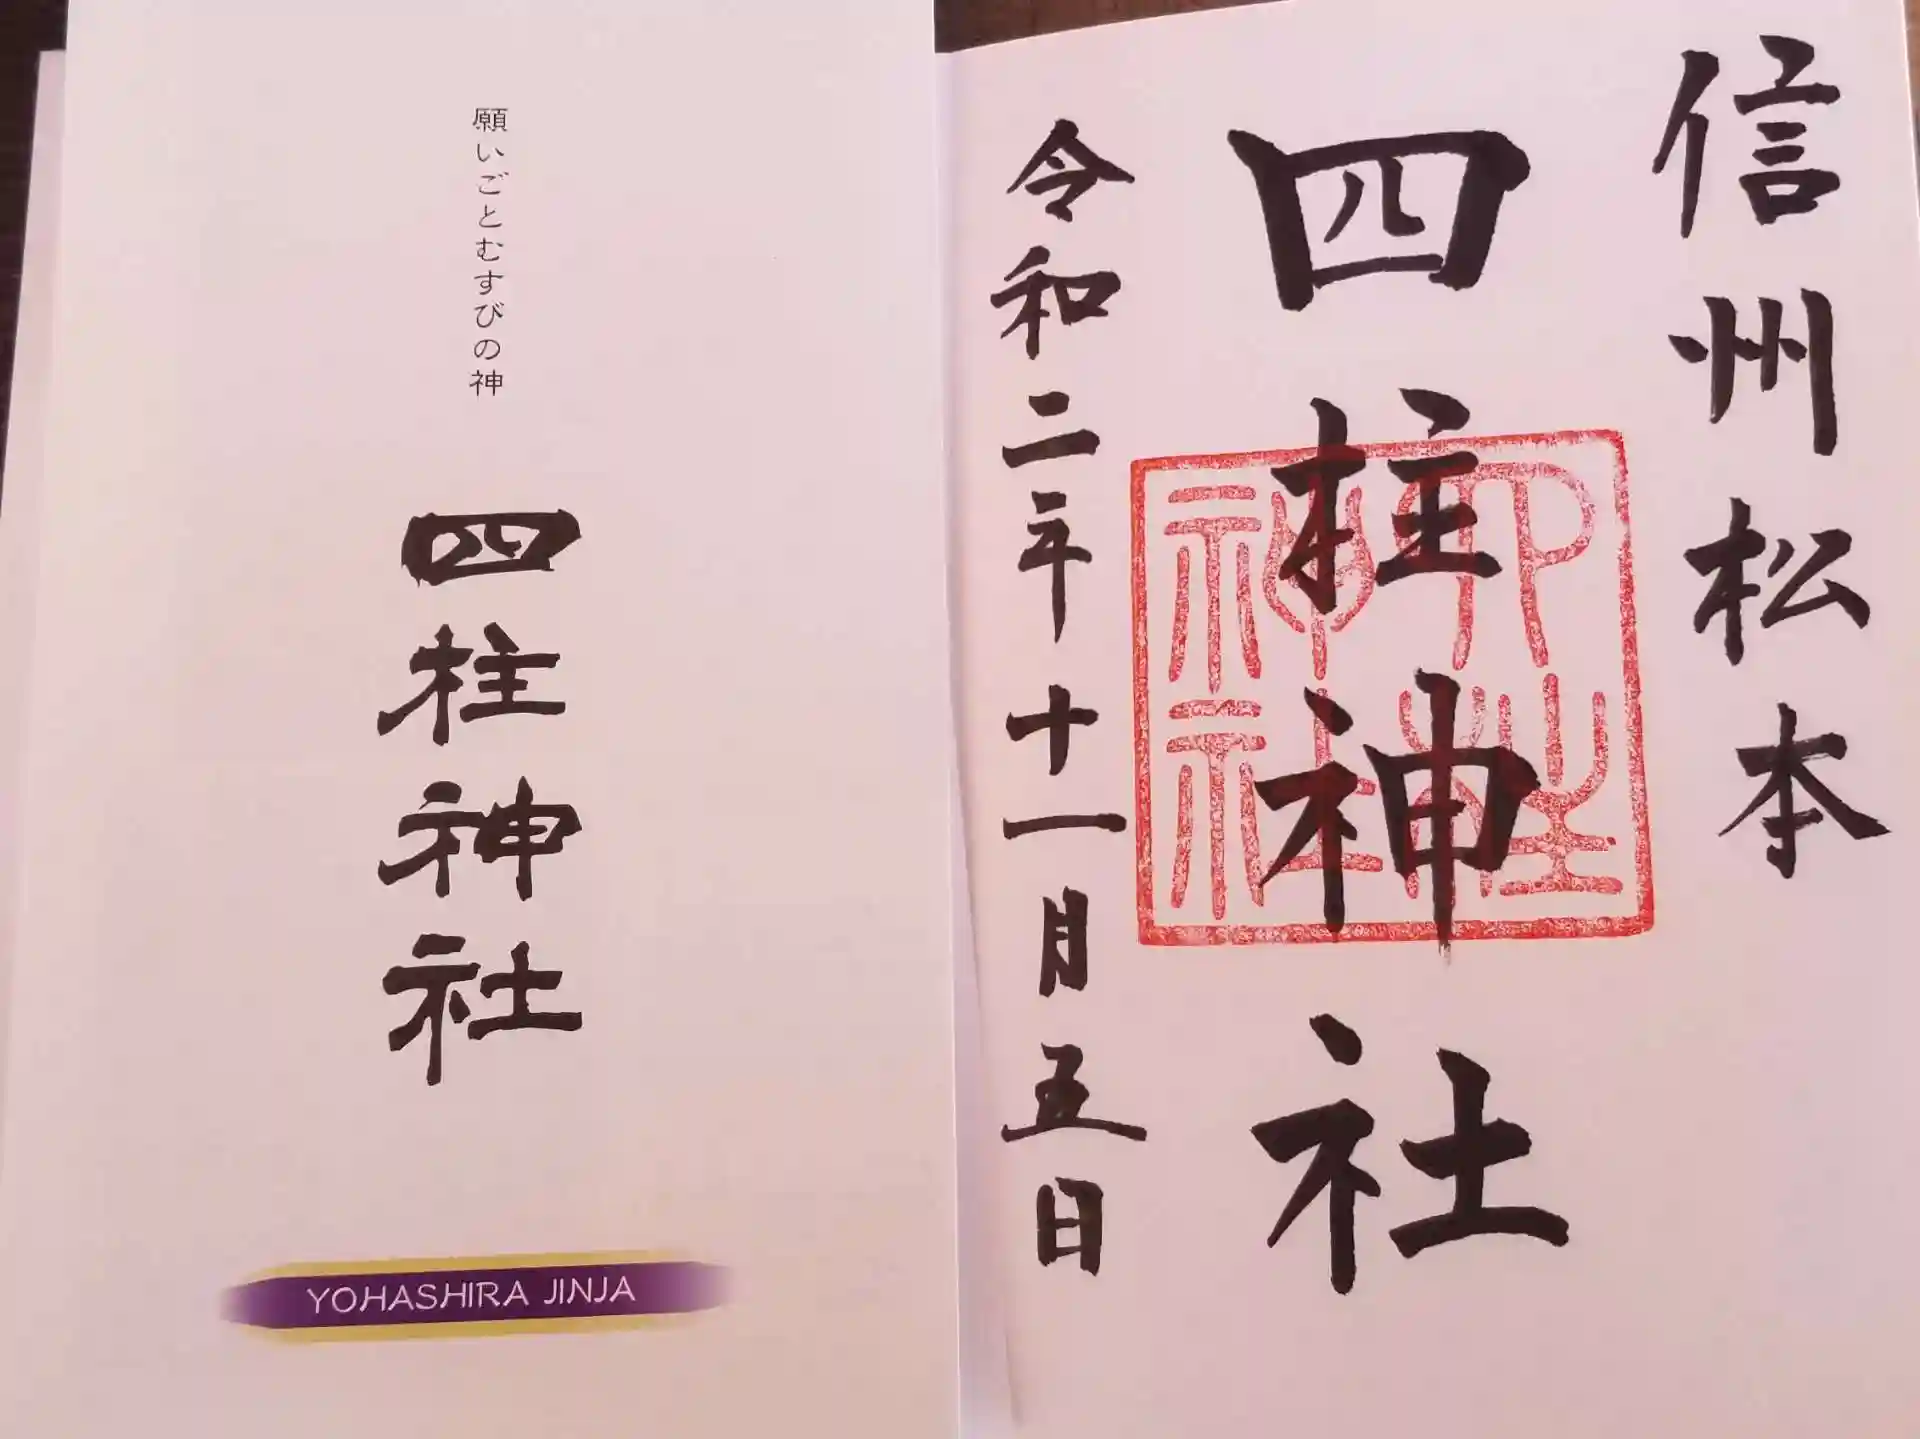 願いごとむすびの神
四柱神社
YOHASHIRA JINJA
信州松本
四柱神社
令和二年十一月五日